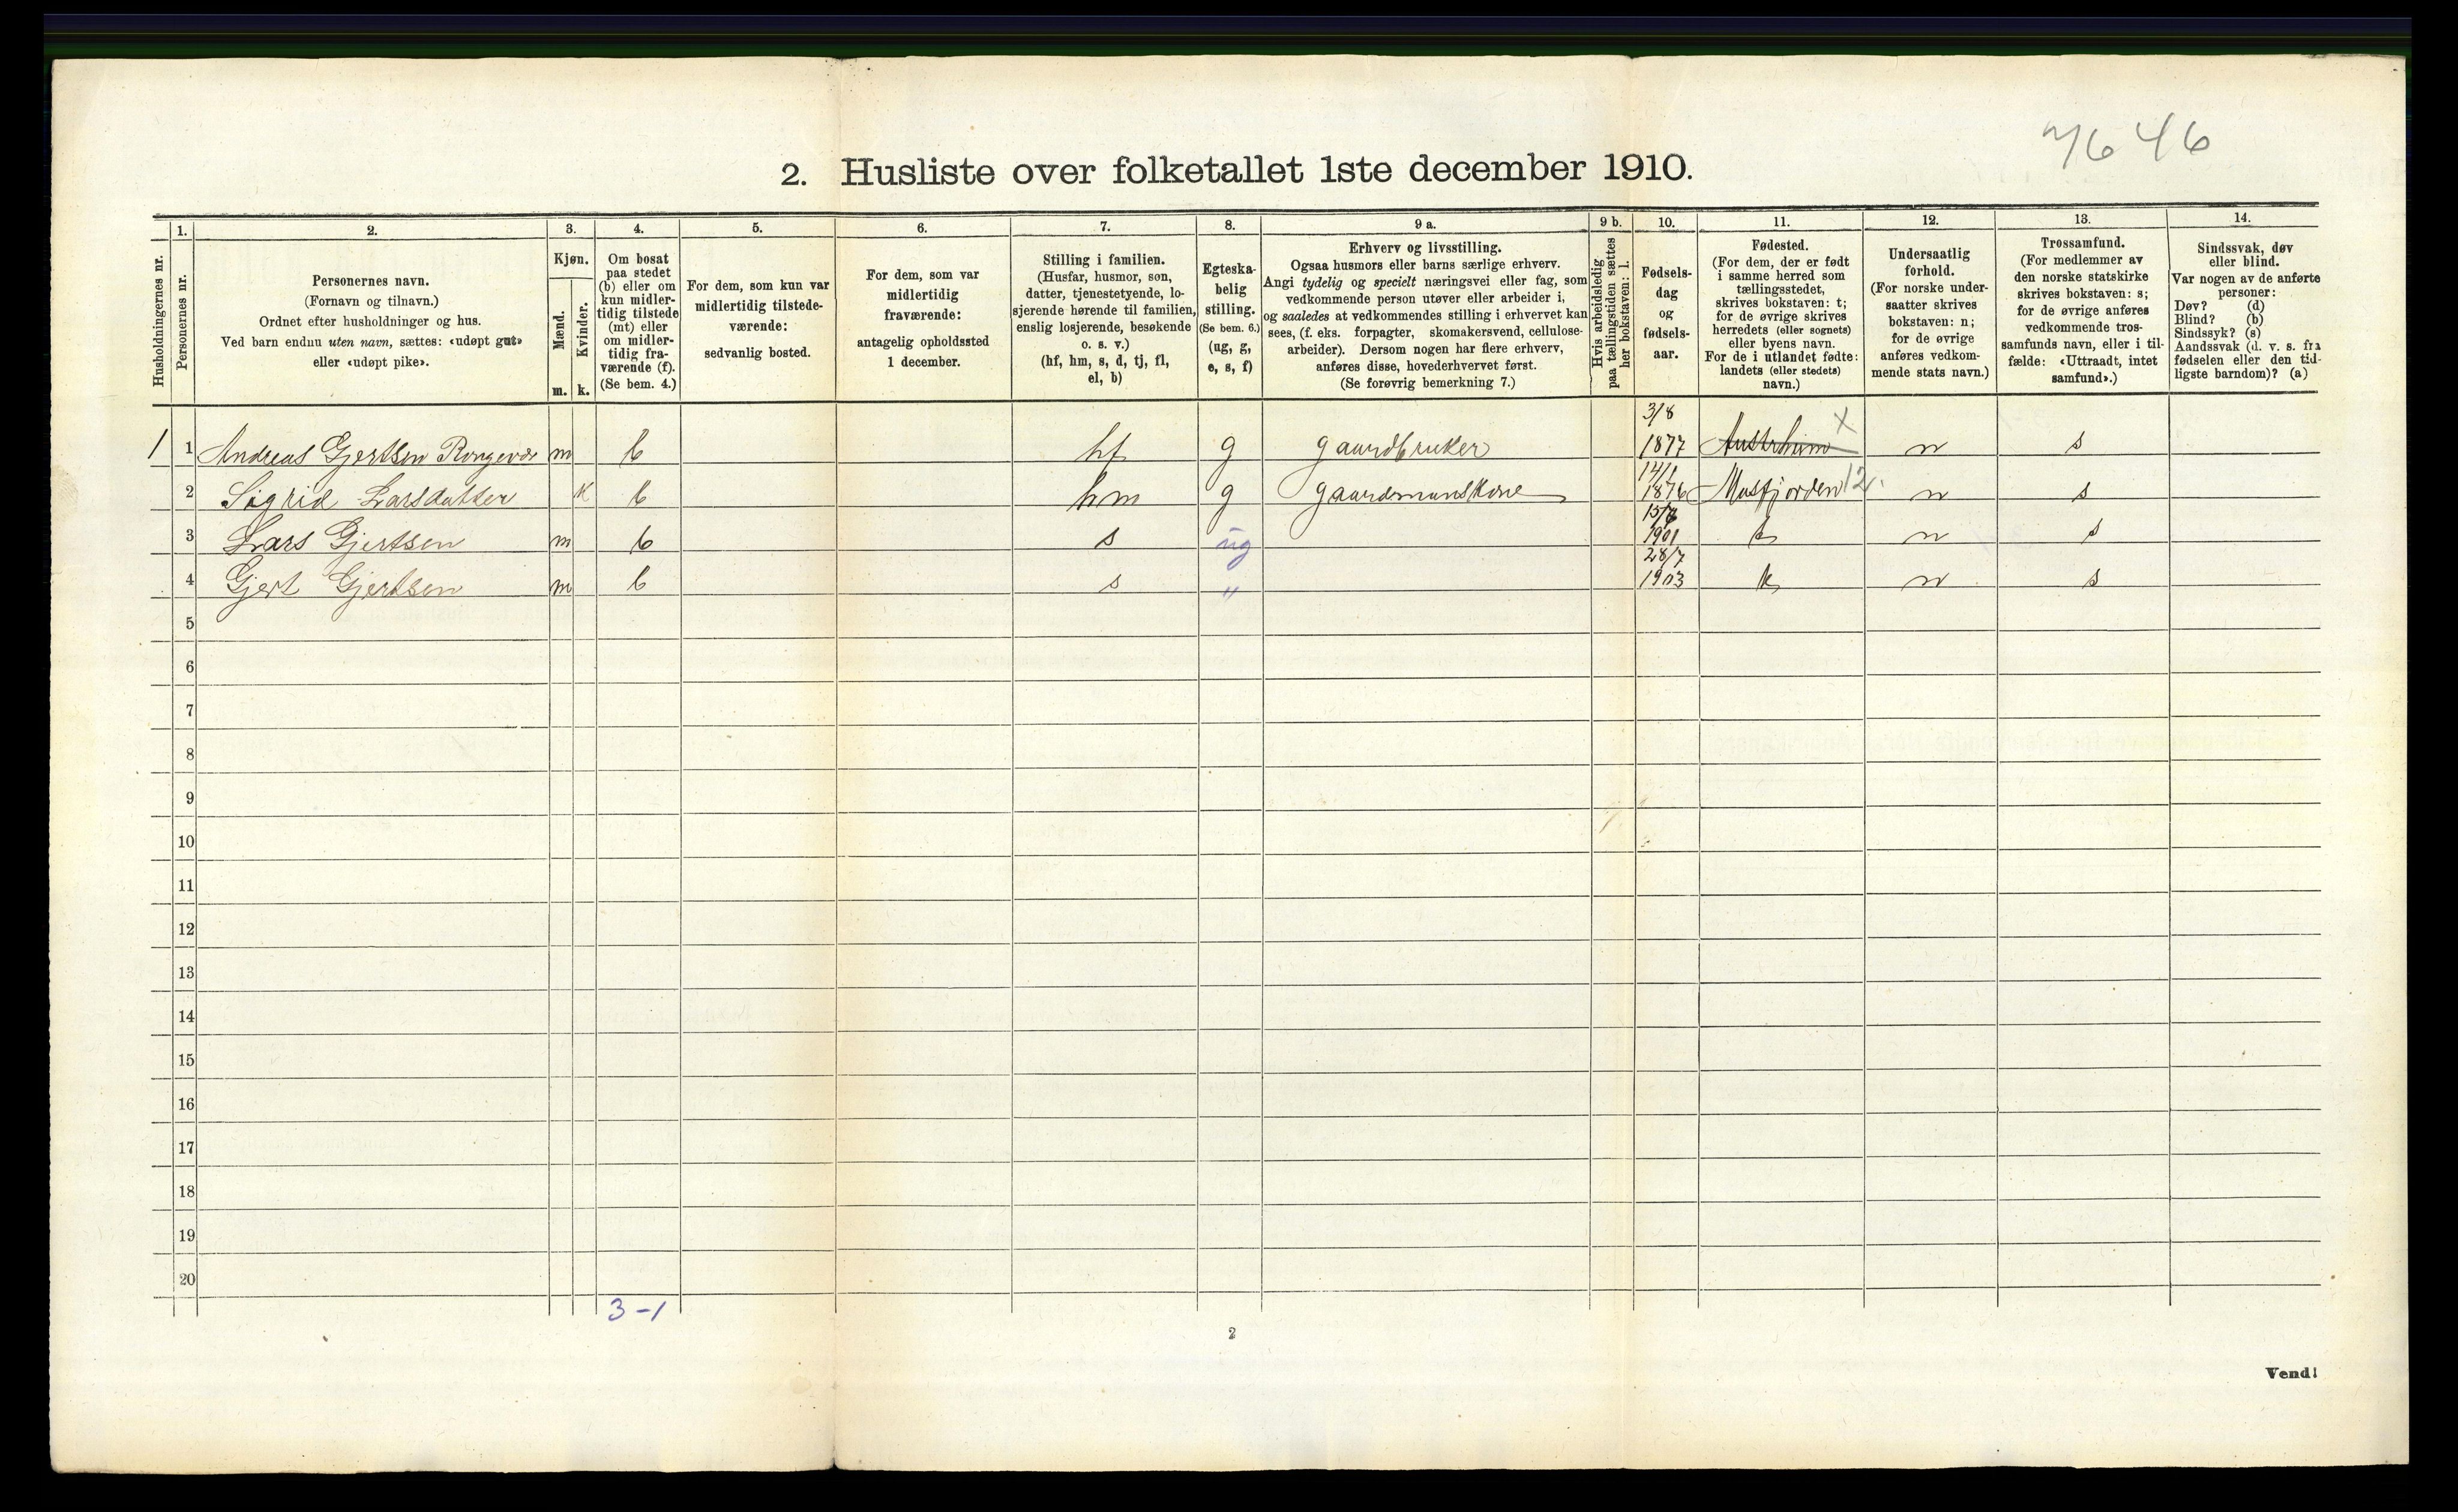 7646
2. Husliste over folketallet 1ste december 1910.
Husholdningernes nr.
1.
Personernes nr.
2.
Personernes navn.
(Fornavn og tilnavn.)
Ordnet efter husholdninger og hus.
Ved barn endnu uten navn, sættes: «udøpt gut»
eller «udøpt pike».
3.
Kjøn.
Mænd.
Kvinder.
m. k.
4.
Om bosat
paa stedet
(b) eller om
kun midler-
tidig tilstede
(mt) eller
om midler-
tidig fra-
værende (f).
(Se bem. 4.)
5.
For dem, som kun var
midlertidig tilstede-
værende:
sedvanlig bosted.
6.
For dem, som var
midlertidig
fraværende:
antagelig opholdssted
1 december.
7.
Stilling i familien.
(Husfar, husmor, søn,
datter, tjenestetyende, lo-
sjerende hørende til familien,
enslig losjerende, besøkende
o. s. v.)
(hf, hm, s, d, tj, fl,
el, b)
8.
Egteska-
belig
stilling.
(Se bem. 6.)
(ug, g,
e, s, f)
9 a.
Erhverv og livsstilling.
Ogsaa husmors eller barns særlige erhverv.
Angi tydelig og specielt næringsvei eller fag, som
vedkommende person utøver eller arbeider i,
og saaledes at vedkommendes stilling i erhvervet kan
sees, (f. eks. forpagter, skomakersvend, cellulose-
arbeider). Dersom nogen har flere erhverv,
anføres disse, hovederhvervet først.
(Se forøvrig bemerkning 7.)
9 b.
Hvis arbeidsledig
paa tællingstiden sættes
her bokstaven: l.
10.
Fødsels-
dag
og
fødsels-
aar.
11.
Fødested.
(For dem, der er født
i samme herred som
tællingsstedet,
skrives bokstaven: t;
for de øvrige skrives
herredets (eller sognets)
eller byens navn.
For de i utlandet fødte:
landets (eller stedets)
navn.)
12.
Undersaatlig
forhold.
(For norske under-
saatter skrives
bokstaven: n;
for de øvrige
anføres vedkom-
mende stats navn.)
13.
Trossamfund.
(For medlemmer av
den norske statskirke
skrives bokstaven: s;
for de øvrige anføres
vedkommende tros-
samfunds navn, eller i til-
fælde: «Uttraadt, intet
samfund».)
14.
Sindssvak, døv
eller blind.
Var nogen av de anførte
personer:
Døv? (d)
Blind? (b)
Sindssyk? (s)
Aandssvak (d. v. s. fra
fødselen eller den tid-
ligste barndom)? (a)
1 1 Andreas Gjertsen Rongevær m b hf g gaardbruker 3/8 1877 Austrheim X n s
2 Sigrid Larsdatter k b hm g gaardmandskone 14/1 1876 Masfjorden 12. n s
3 Lars Gjertsen m b s ug 1901 t n s
4 Gjert Gjertsen m b s " 28/7 1903 t n s
5
6
7
8
9
10
11
12
13
14
15
16
17
18
19
20
3-1
2
Vend!